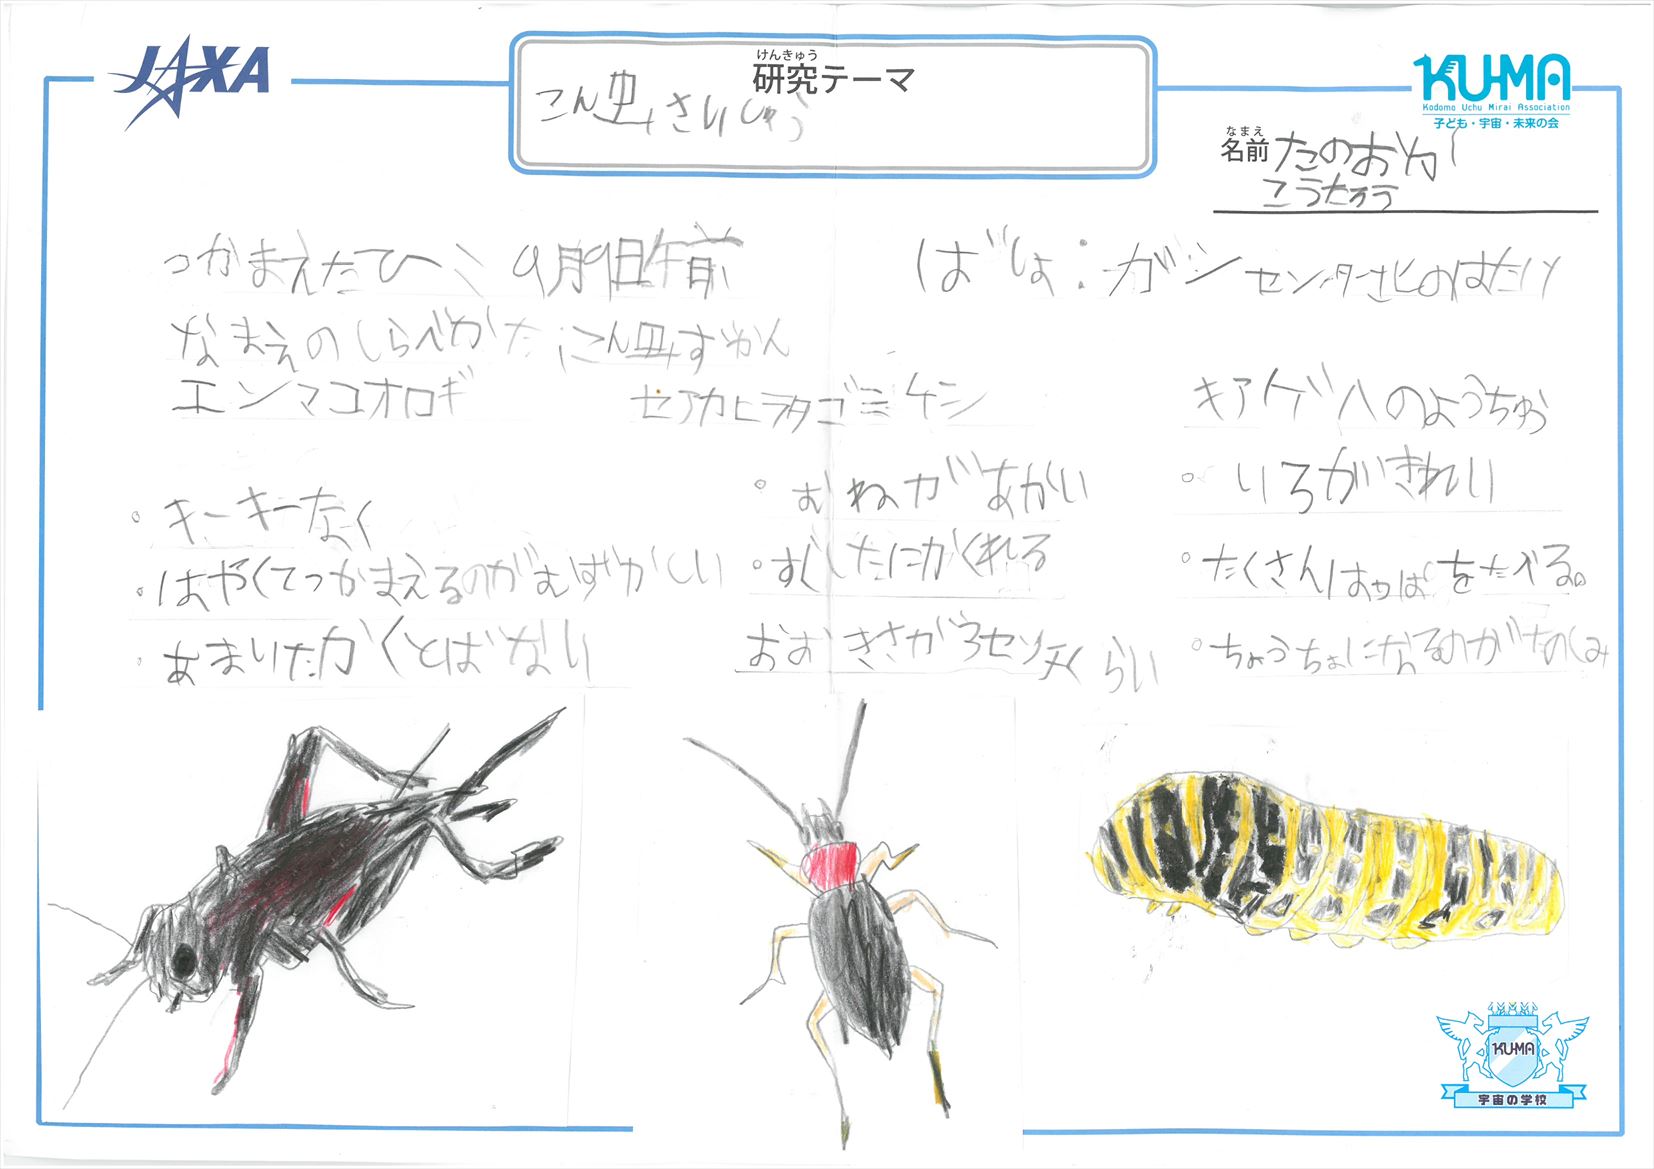 JAXA
けんきゅう
研究テーマ
こん虫さいしゅう
KU-MA
Kodomo Uchu Mirai Association
子ども・宇宙・未来の会
なまえ
名前 たのおか
こうたろう
つかまえたひ 9月9日午前
ばしょ:ガシセンターきたのはたけ
なまえのしらべかた:こん虫ずかん
エンマコオロギ
セアカヒラタゴミムシ
キアゲハのようちゅう
・キーキーなく
・はやくてつかまえるのがむずかしい
・あまりたかくとばない
・むねがあかい
・すぐしたにかくれる
おおきさが3センチくらい
・いろがきれい
・たくさんはっぱをたべる。
・ちょうちょになるのがたのしみ
KU-MA
宇宙の学校